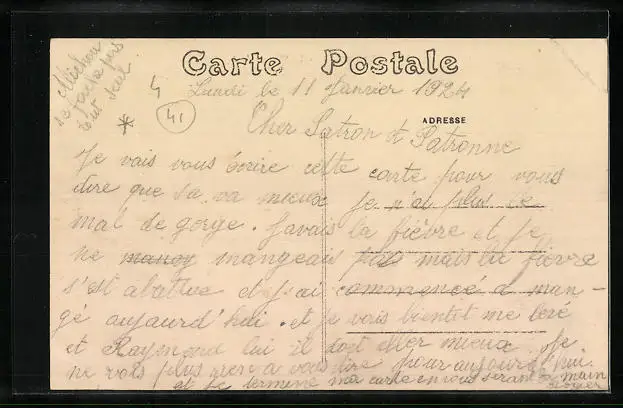 Michou
se cache pas
tout seul
Carte Postale
4
41
*
Lundi le 11 Janvier 1924
ADRESSE
Cher Patron et Patronne
Je vais vous écrire cette carte pour vous
dire que sa va mieux Je n'ai plus ce
mal de gorge. Javais la fièvre et Je
ne mangeais pas mais la fièvre
s'est abattue et J'ai commencé a man-
gé aujourd'hui. et Je vais bientot me levé
et Raymond lui il doit aller mieux. Je
ne vois plus rien a vous dire pour aujourd'hui.
et Je termine ma carte en vous serant la main